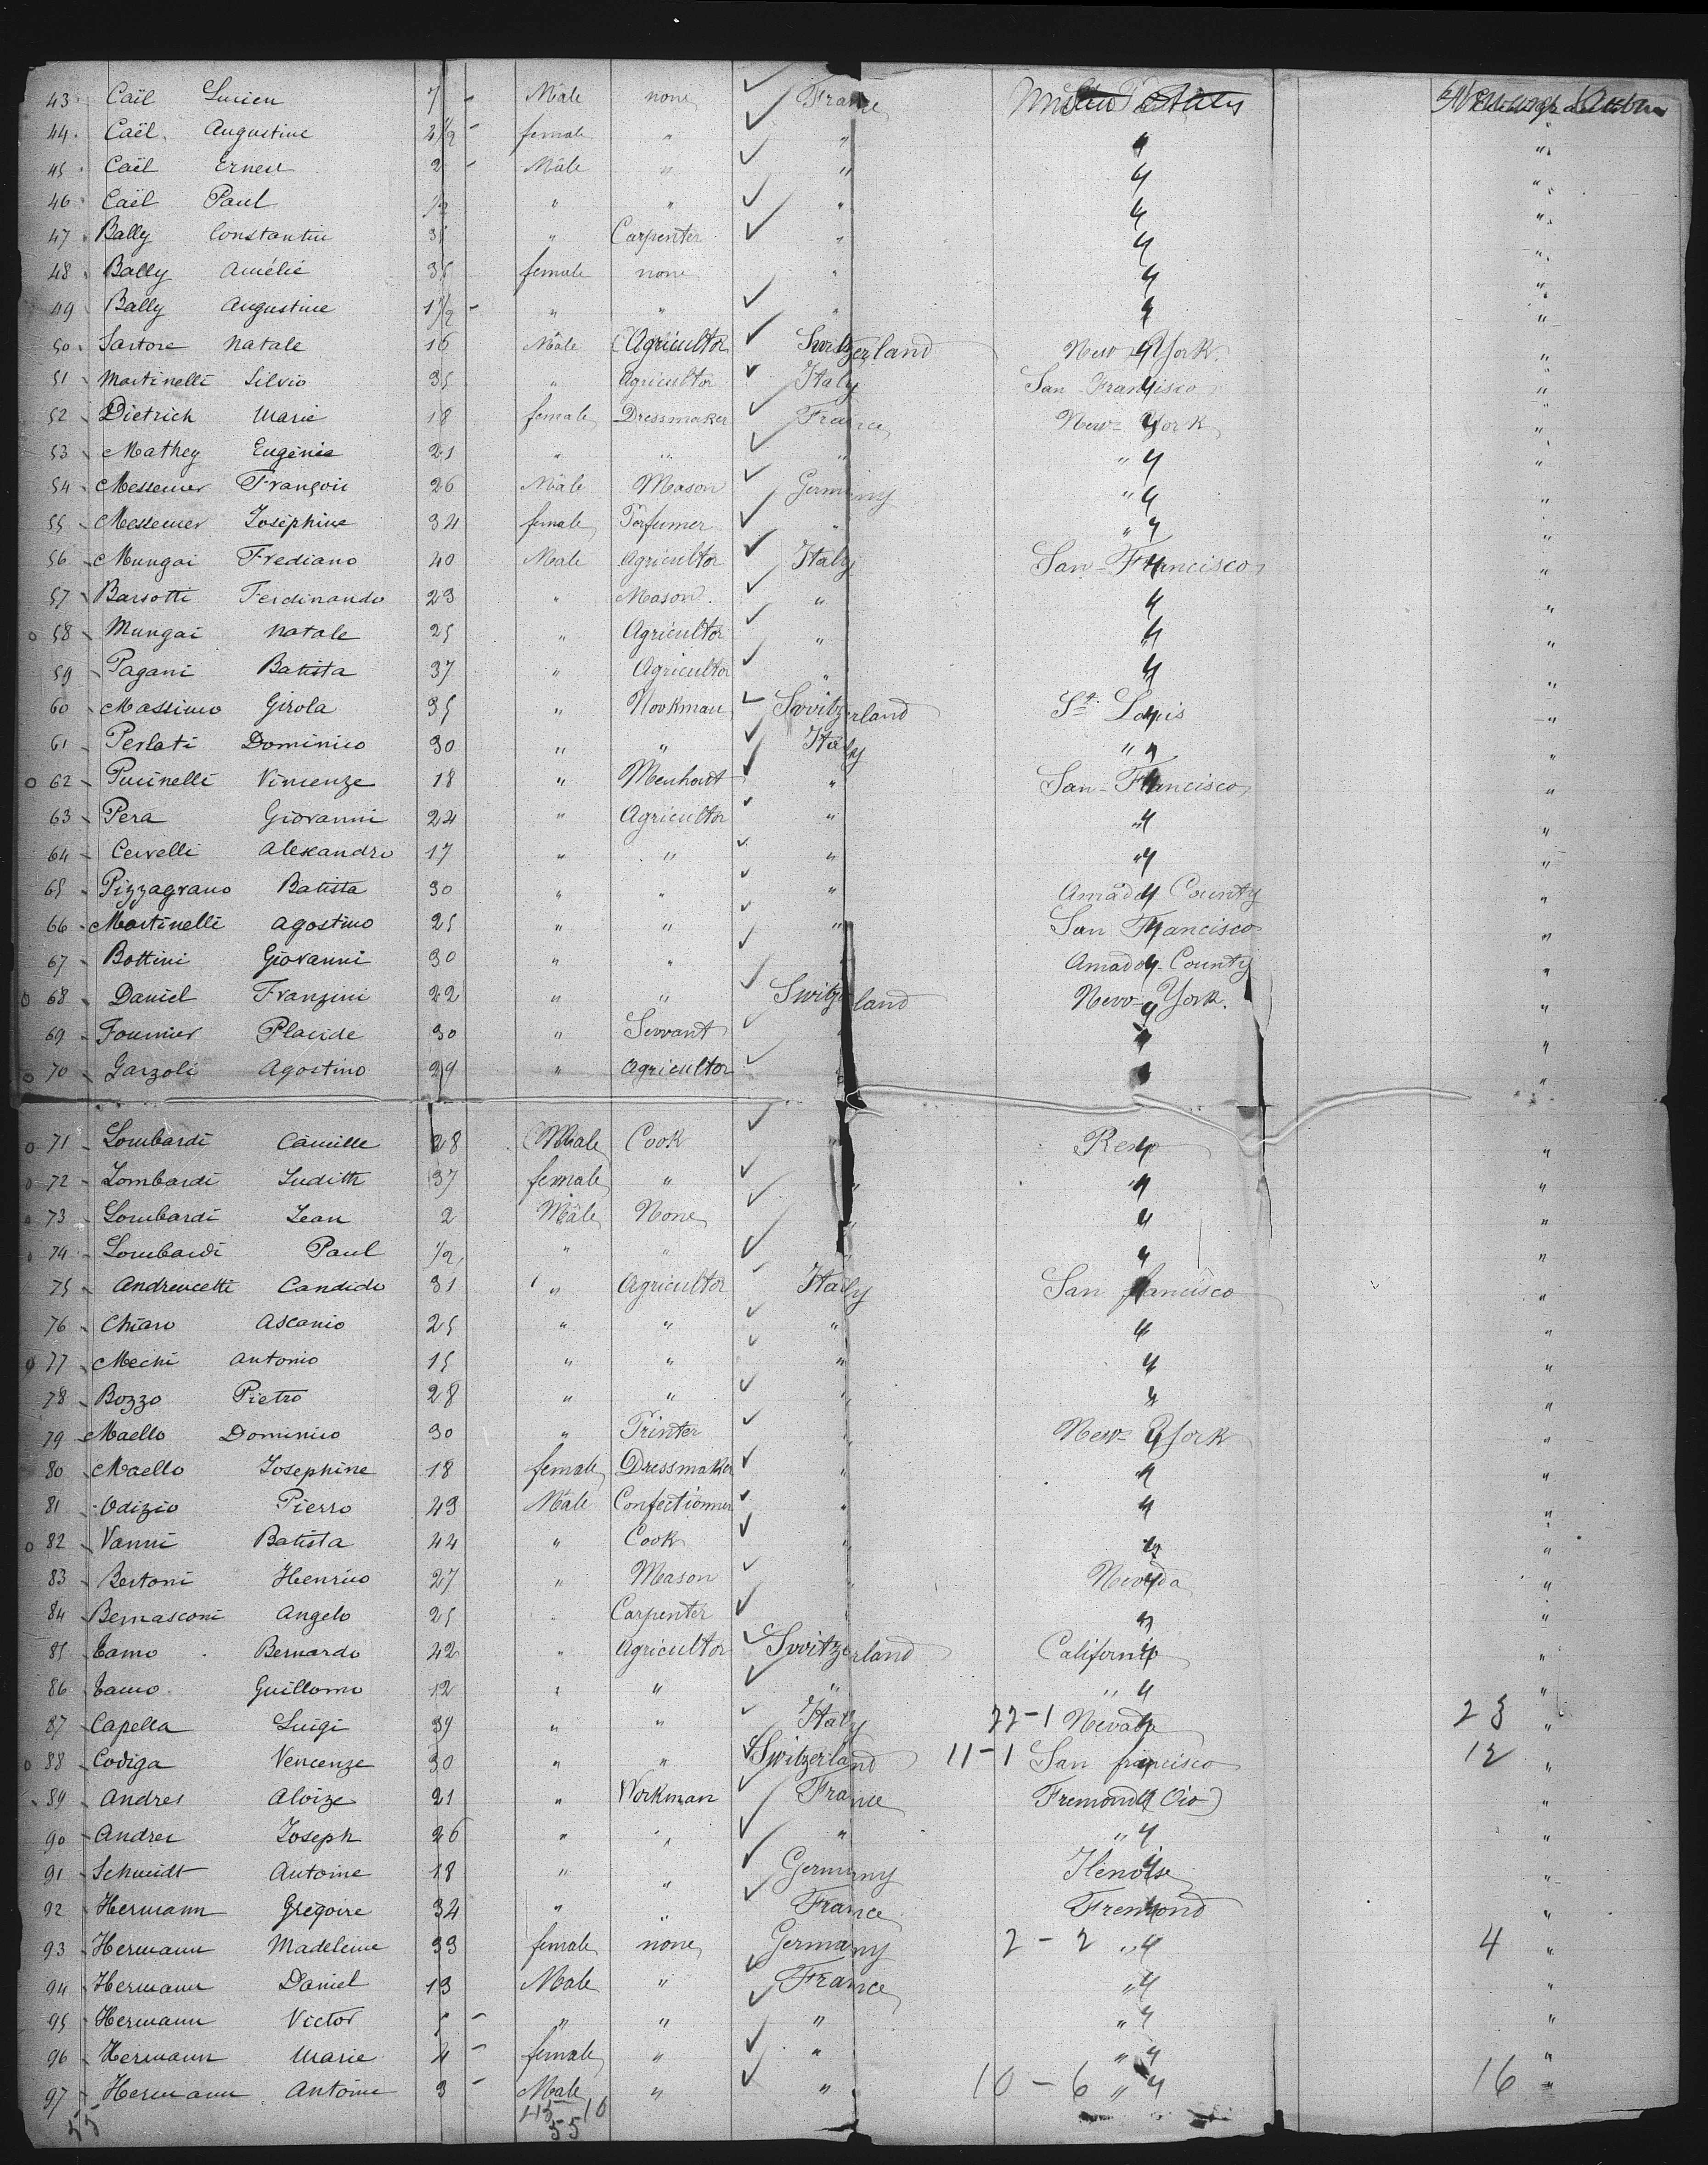 43 Caël Lucien 7 - Male none ✓ France
44. Caël. Augustine 4 1/2 - female " ✓ " " "
45 Caël Ernest 2 - Mâle " ✓ " " "
46 Caël Paul 1/2 " " ✓ " " "
47 Bally Constantin 35 " Carpenter ✓ " " "
48 Bally Amélie 35 female none " " "
49 Bally Augustine 1 1/2 - " " ✓ " " "
50 Sartore Natale 16 Male Agricultor ✓ Switzerland New York "
51 Martinelli Silvio 35 " Agricultor ✓ Italy San Francisco "
52 Dietrich Marie 18 female Dressmaker ✓ France New-York "
53 Mathey Eugénie 21 " " ✓ " " "
54 Messemer François 26 Mâle Mason ✓ Germany " "
55 Messemer Joséphine 34 female Porfumer ✓ " " "
56 Mungai Frediano 40 Male Agricultor ✓ Italy San-Francisco "
57 Barsotti Ferdinando 23 " Mason. ✓ " " "
58 Mungai Natale 25 " Agricultor ✓ " " "
59 Pagani Batista 37 " Agricultor ✓ " " "
60 Massimo Girola 35 " Workman ✓ Switzerland St. Louis "
61 Perlati Dominico 30 " " ✓ Italy " "
62 Pucinelli Vincenze 18 " Menhart ✓ " San-Francisco "
63 Pera Giovanni 24 " Agricultor ✓ " " "
64 Cervelli Alexandro 17 " " ✓ " " "
65 Pizzagrano Batista 30 " " ✓ " Amador County "
66 Martinelli Agostino 25 " " ✓ " San Francisco "
67 Bottini Giovanni 30 " " ✓ Amador-County "
68 Daniel Franzini 22 " " ✓ Switzerland New-York. "
69 Fournier Placide 30 " Servant ✓ "
70 Garzoli Agostino 29 " Agricultor ✓ "
71 Lombardi Camille 28 Male Cook ✓ Reno "
72 Lombardi Judith 37 female " ✓ " " "
73 Lombardi Jean 2 Mâle None ✓ " " "
74 Lombardi Paul 1/2 " " ✓ " " "
75 Andreucetti Candido 31 " Agricultor ✓ Italy San francisco "
76 Chiaro Ascanio 25 " " ✓ " " "
77 Mechi Antonio 15 " " ✓ " " "
78 Bozzo Pietro 28 " " ✓ " " "
79 Maello Dominico 30 " Printer ✓ " New-York "
80 Maello Josephine 18 female Dressmaker ✓ " " "
81 Odizio Pierro 43 Mâle Confectionner ✓ " " "
82 Vanni Batista 44 " Cook ✓ " " "
83 Bertoni Henrico 27 " Mason ✓ " Nevada "
84 Bernasconi Angelo 25 " Carpenter ✓ " "
85 Tamo Bernardo 42 " Agricultor ✓ Switzerland California "
86 Tamo Guillomo 12 " " ✓ " " "
87 Capella Luigi 39 " " ✓ Italy 22-1 Nevada 23 "
88 Codiga Vencenze 30 " " ✓ Switzerland 11-1 San francisco 12 "
89 Andres Aloize 21 " Workman ✓ France Fremond (Oio) "
90 Andres Joseph 26 " " ✓ " " "
91 Schmidt Antoine 18 " " ✓ Germany Ilenoise "
92 Hermann Gregoire 34 " " ✓ France Fremond "
93 Hermann Madeleine 33 female none Germany 2-2 " 4 "
94 Hermann Daniel 13 Male " ✓ France " "
95 Hermann Victor 5 - " " ✓ " " "
96 Hermann Marie 4 - female " ✓ " " "
97 Hermann Antoine 3 - Male " ✓ " 10-6 " 16 "
55 45 10
55